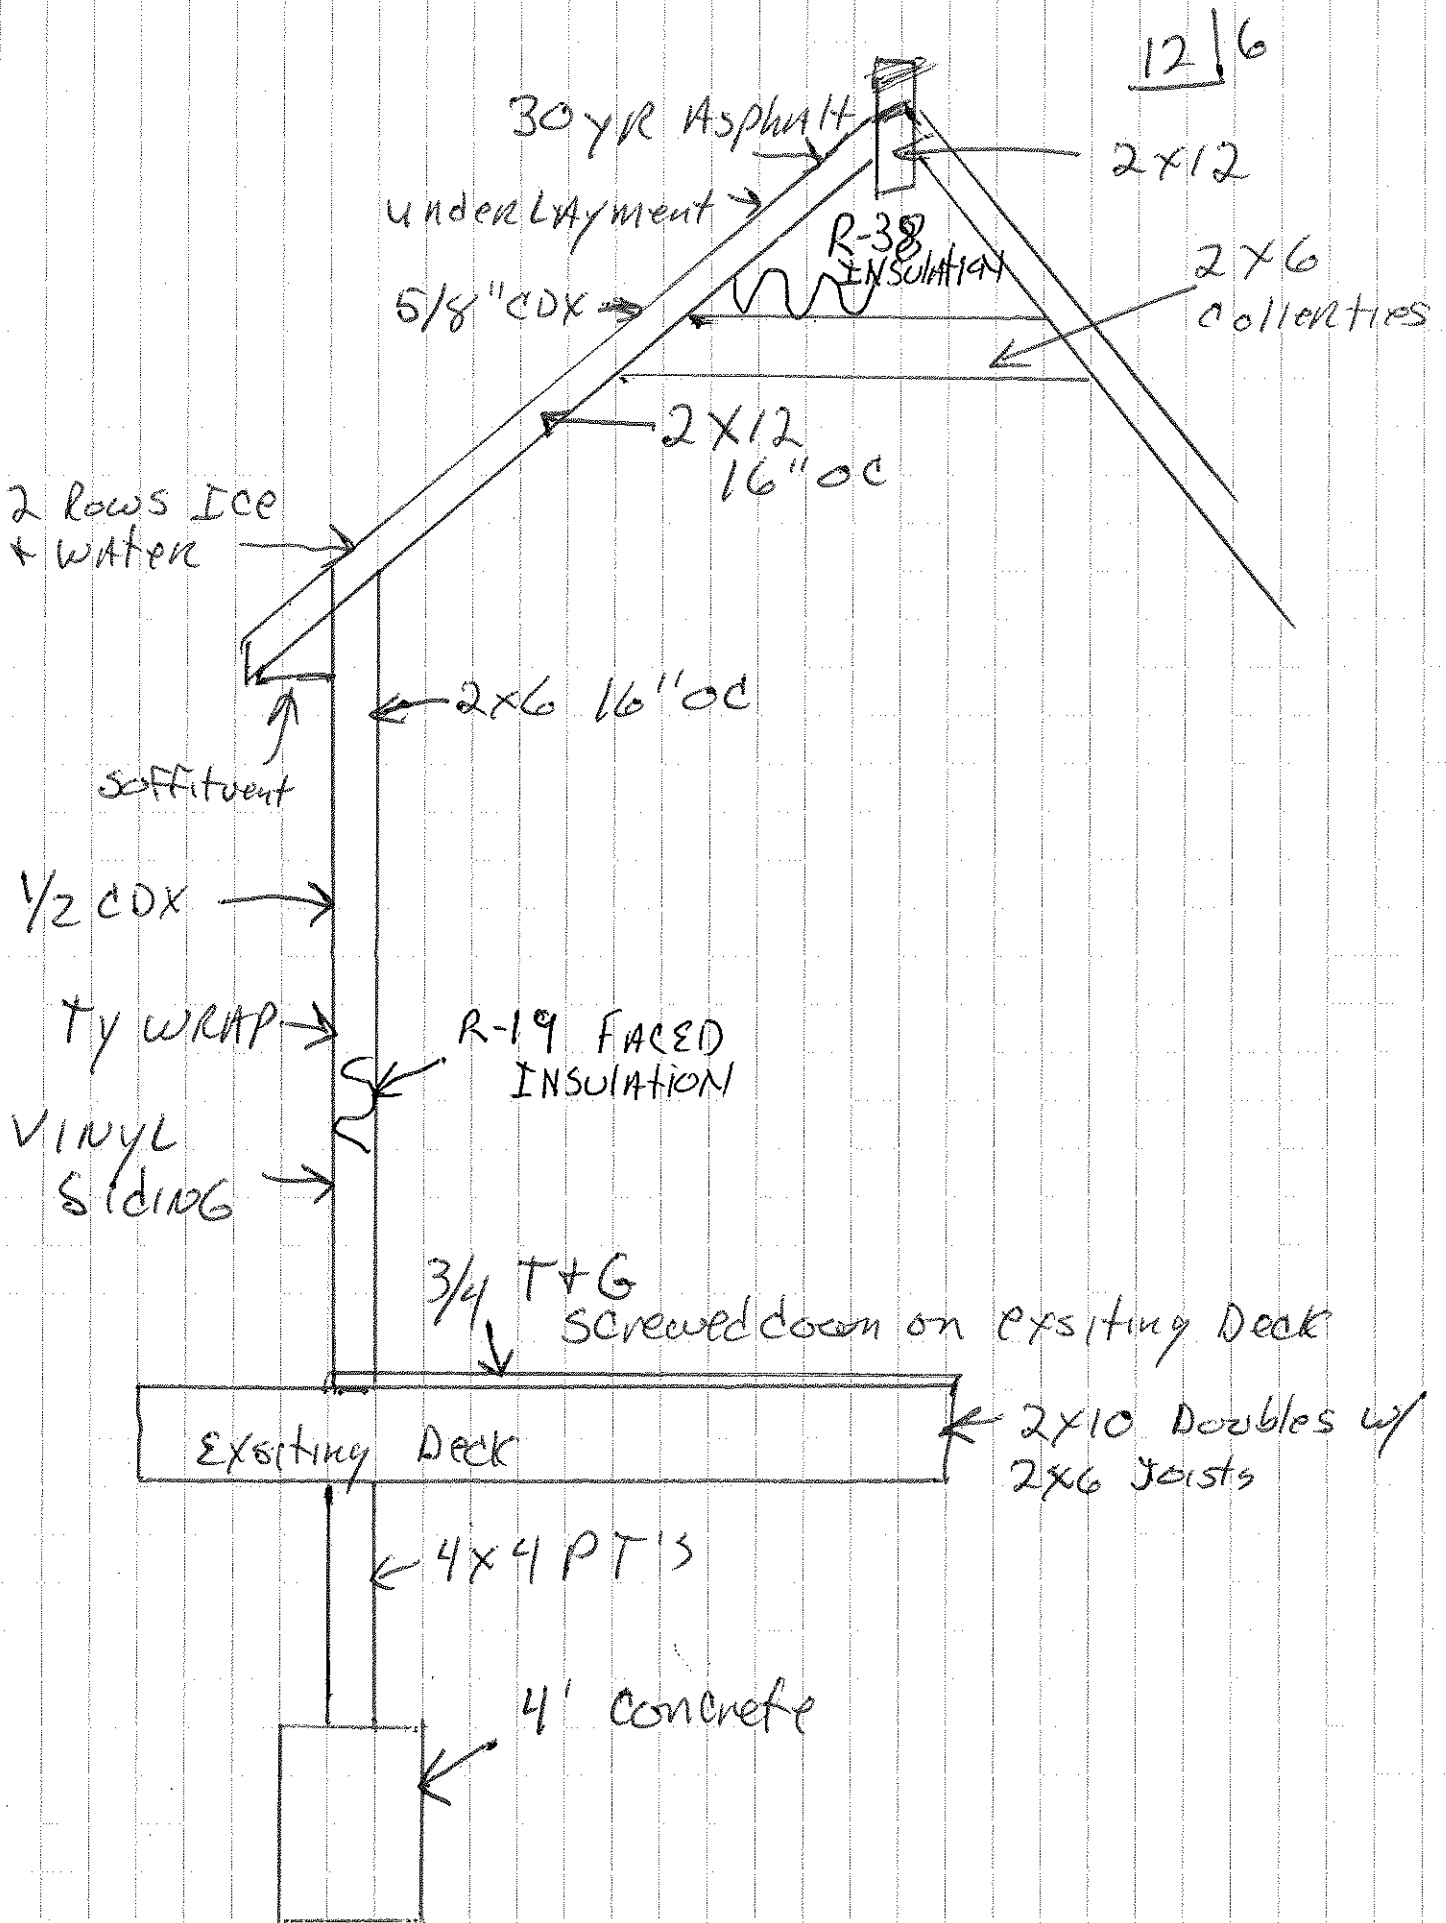 12 | 6
30 yR Asphalt
2x12
underLAyment
R-38
INSulatION
2x6
collerties
5/8" CDX
2x12
16" oc
2 Rows Ice
+ WAteR
2x6 16" oc
soffitvent
1/2 CDX
Ty WRAP
R-19 FACED
INSulAtiON
VINyL
SidiNG
3/4 T+G
screwed down on exsiting Deck
Exsiting Deck
2x10 Doubles w/
2x6 Joists
4x4 PT's
4' concrete